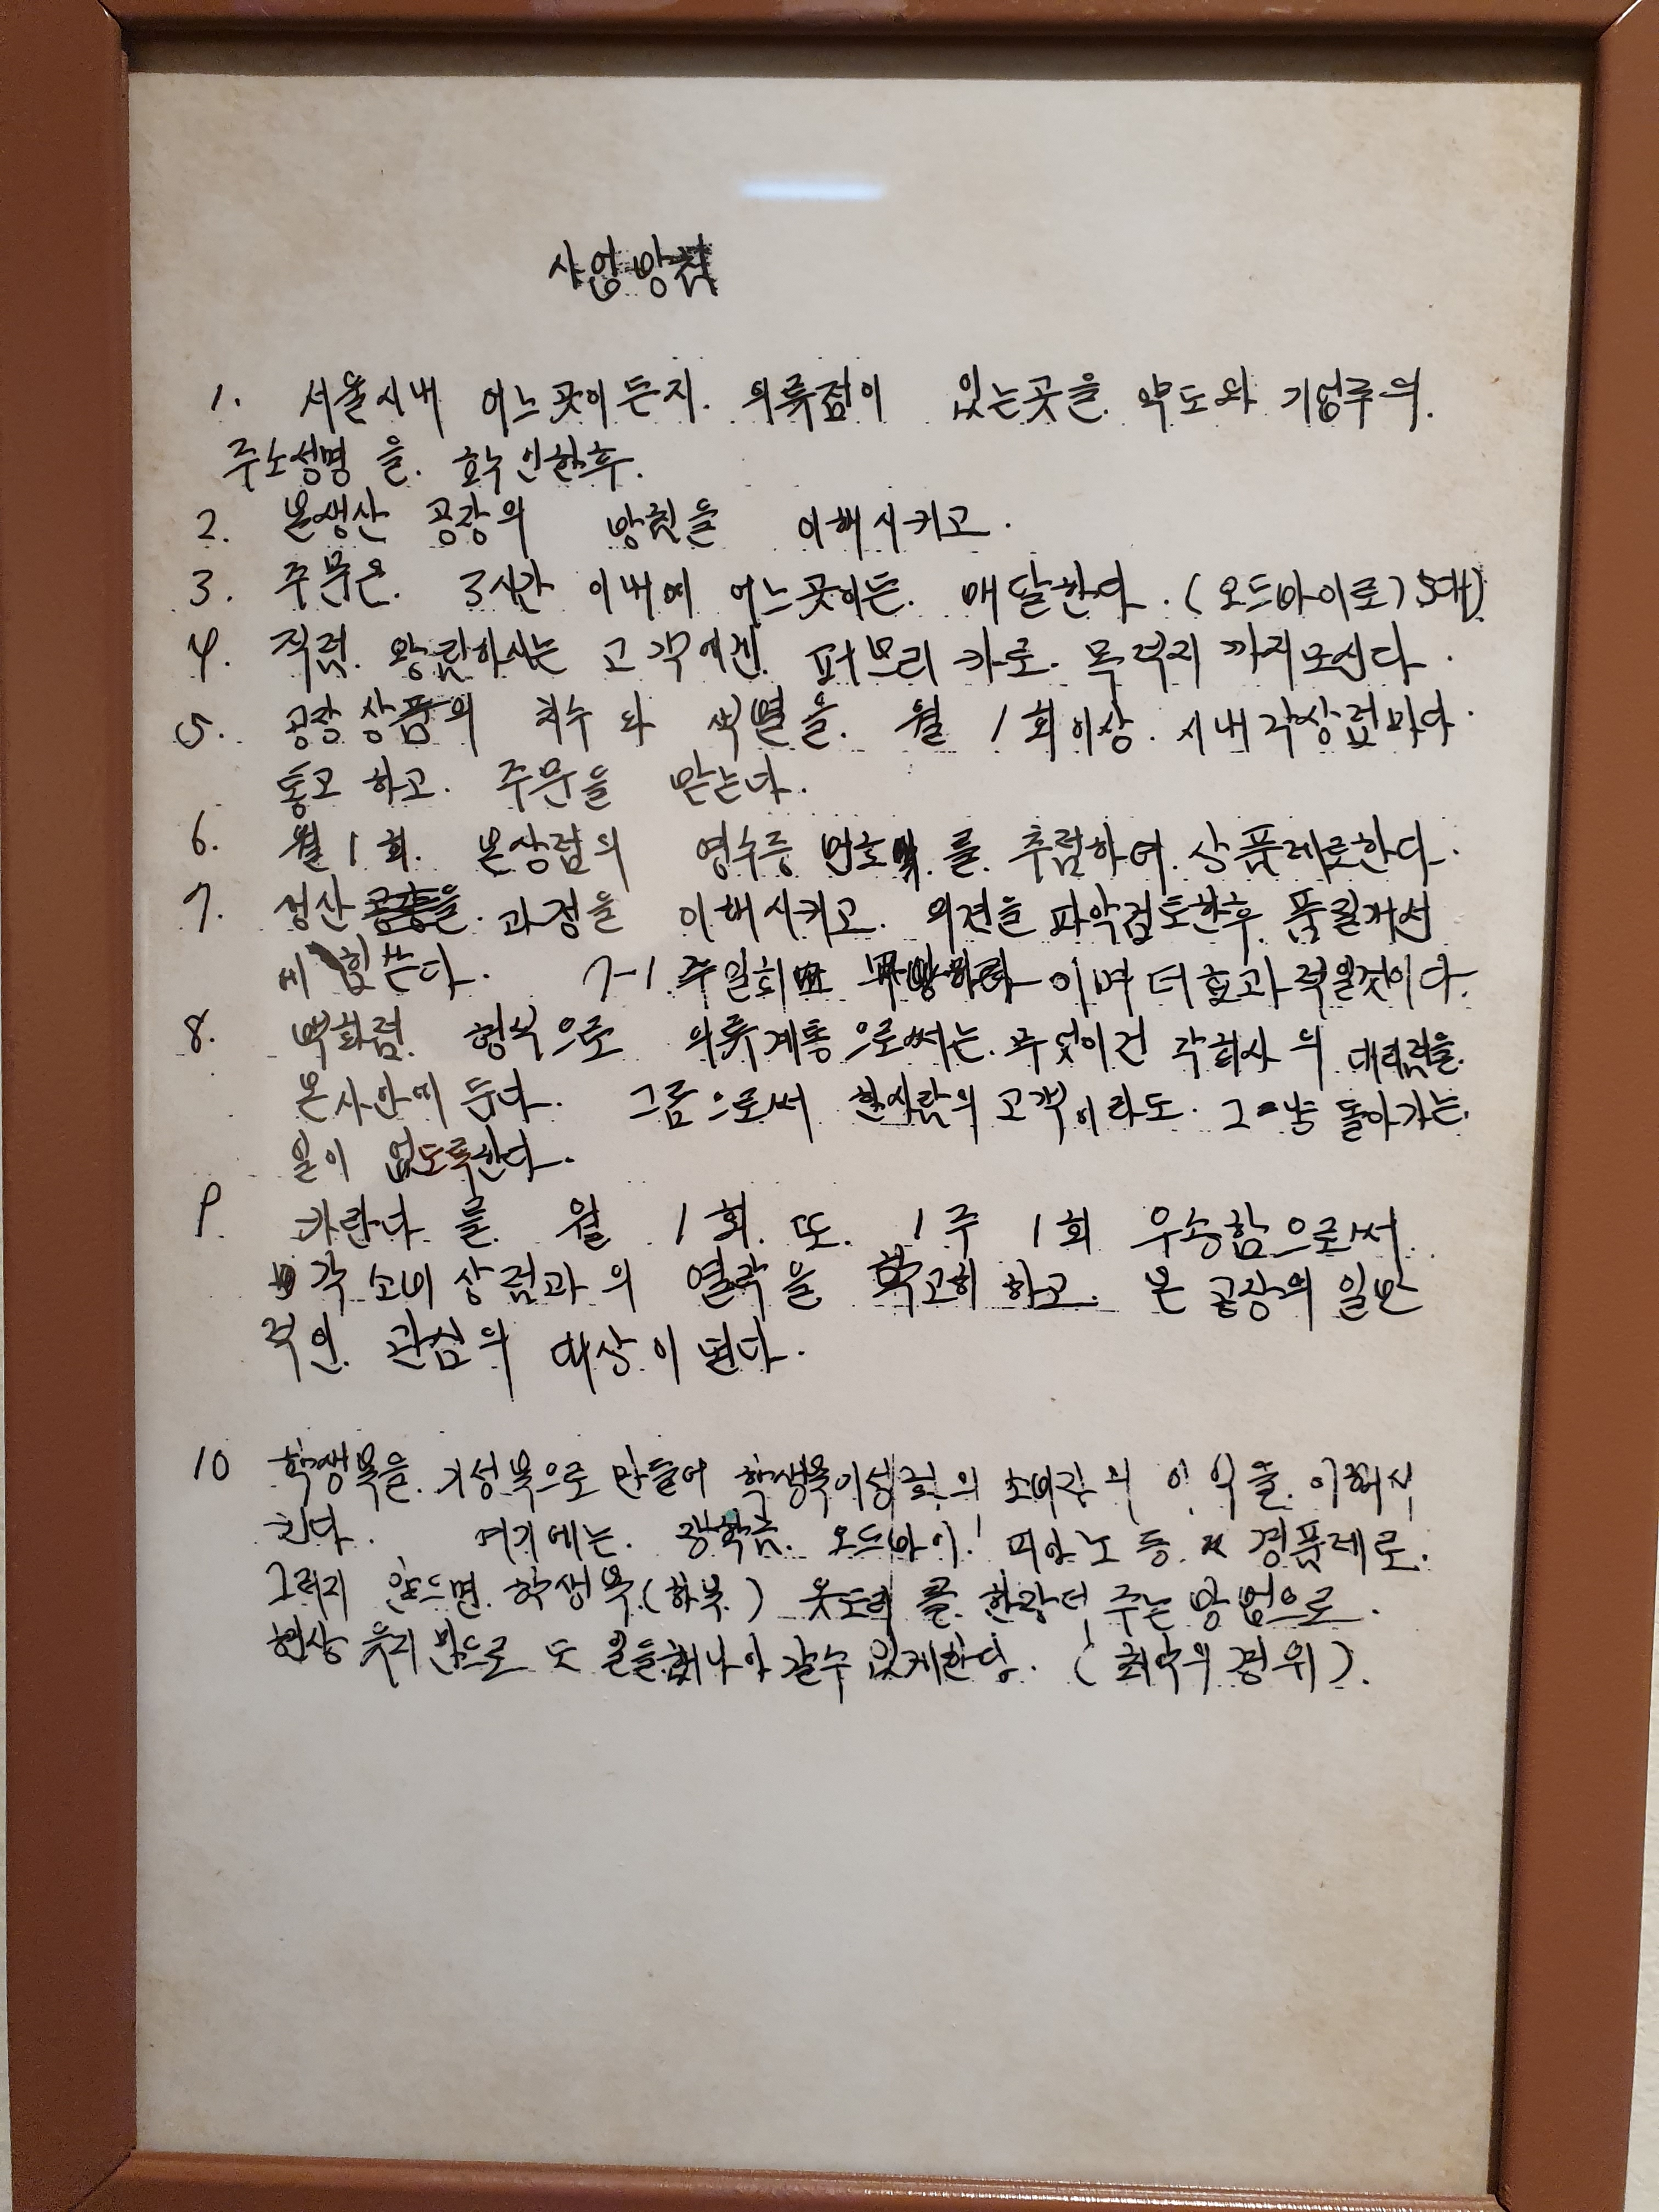 사업방침
1. 서울시내 어느곳이든지. 의류점이 있는곳을. 약도와 기업주의.
주소성명 을. 확인한후.
2. 본생산 공장의 방침을 이해시키고.
3. 주문은. 3시간 이내에 어느곳이든. 배달한다. (오드바이로) 5대)
4. 직접. 왕림하시는 고객에겐. 퍼브리카로. 목적지 까지모신다.
5. 공장상품의 치수와 색별을. 월 1회이상. 시내각상점마다
통고하고. 주문을 받는다.
6. 월1회. 본상점의 영수증 번호 를. 추첨하여. 상품제로한다.
7. 생산 과정을 이해시키고. 의견을 파악검토한후. 품질개선
에 힘쓴다. 7-1 주일회 이며 더효과적일것이다.
8. 백화점. 형식으로 의류계통으로써는. 무엇이건 각회사의 대리점을.
본사안에 둔다. 그름으로써 한사람의 고객이라도. 그냥 돌아가는.
일이 없도록한다.
9. 카란다 를. 월 1회. 또. 1주 1회 우송함으로써.
각 소비상점과의 열락을 확고히 하고. 본 공장의 일반
적인. 관심의 대상이 된다.
10 학생복을. 기성복으로 만들어 학생복 의 소비자의 인식을. 이해시
킨다. 여기에는. 장학금. 오드바이. 피아노 등 경품제로.
그러지 않으면. 학생복.(하복.) 웃도리를. 한장더 주는 방법으로.
현상 유지만으로 도 일을해나아갈수있게한다. (최악의경위).